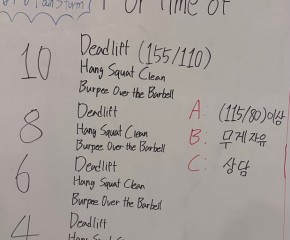 For Time of
10
Deadlift (155/110)
Hang Squat Clean
Burpee Over the Barbell
8
Deadlift
Hang Squat Clean
Burpee Over the Barbell
A: (115/80)이상
B: 무게자유
C: 상담
6
Deadlift
Hang Squat Clean
Burpee Over the Barbell
4
Deadlift